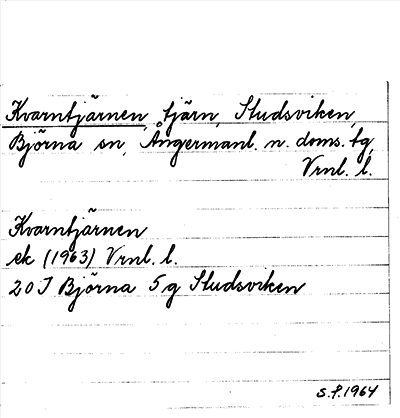 Kvarntjärnen, tjärn, Studsviken,
Björna sn, Ångermanl. n. doms. tg,
Vrnl. l.
Kvarntjärnen
ek (1963) Vrnl. l.
20 J Björna 5 g Studsviken
S.P. 1964